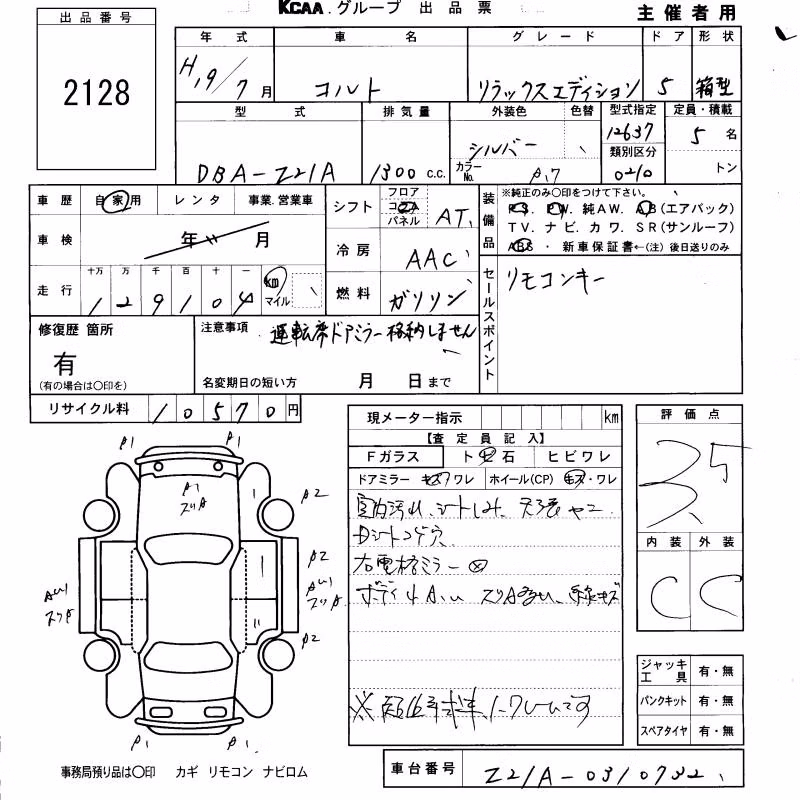 KCAA.グループ 出品票
主催者用
出品番号
2128
年式 車名 グレード ドア 形状
H19/7月 コルト リラックスエディション 5 箱型
型式 排気量 外装色 色替 型式指定 定員・積載
DBA-Z21A 1300 C.C. シルバー 12637 5名
カラーNo. A17 類別区分 0210 トン
車歴 自家用 レンタ 事業.営業車
シフト フロア コラム パネル AT
装備品 ※純正のみ〇印をつけて下さい。
PS. PW. 純AW. AB(エアバッグ)
TV. ナビ. カワ. SR(サンルーフ)
ABS ・ 新車保証書←(注) 後日送りのみ
車検 年 月
冷房 AAC
走行 十万 万 千 百 十 一 km マイル
129104
燃料 ガソリン
セールスポイント リモコンキー
修復歴 箇所
有
(有の場合は〇印を)
注意事項 運転席ドアミラー格納しません
名変期日の短い方 月 日まで
リサイクル料 10570円
現メーター指示 km
【査定員記入】
Fガラス ト ビ 石 ヒビワレ
ドアミラー キズ ワレ ホイール(CP) キズ・ワレ
室内汚れ、シートしみ、
Dシートコゲ穴
右電格ミラー ⊗
ボディ 小A
評価点
3.5
内装 外装
C C
A1 A1
A1
スリA
A2
A2
AU1
スリA
AU1
スリA
A2
A1 A1
ジャッキ工具 有・無
パンクキット 有・無
スペアタイヤ 有・無
事務局預り品は〇印 カギ リモコン ナビロム
車台番号 Z21A-0310732